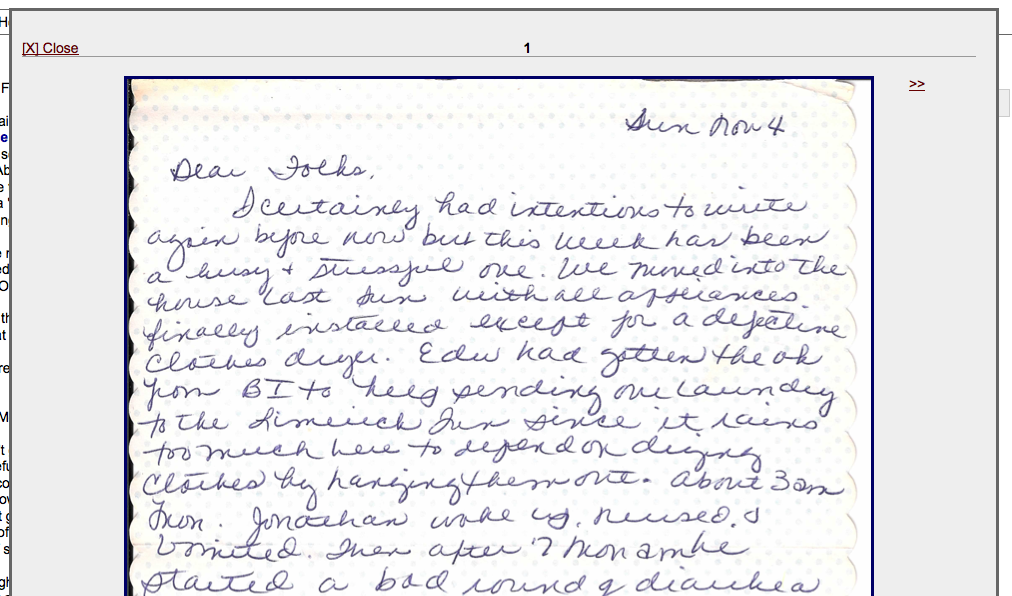 [X] Close
1
>>
Sun Nov 4
Dear Folks,
I certainly had intentions to write
again before now but this week has been
a busy + stressful one. We moved into the
house last Sun with all appliances
finally installed except for a defective
clothes dryer. Edw had gotten the ok
from BI to keep sending our laundry
to the Limerick Inn since it rains
too much here to depend on drying
clothes by hanging them out. About 3am
Mon. Jonathan woke up, nursed, &
vomited. Then after 7 Mon am he
started a bad round of diarrhea